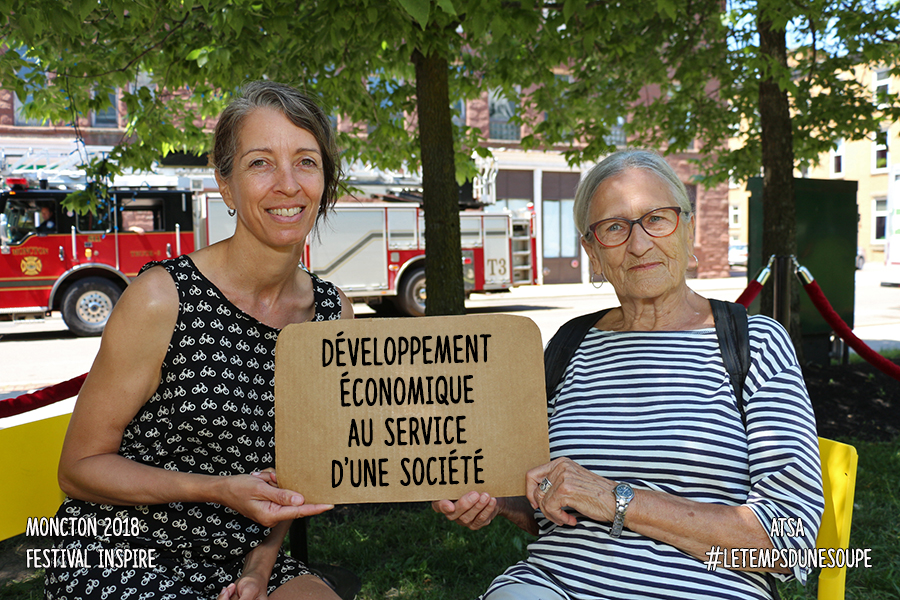 T3
DÉVELOPPEMENT
ÉCONOMIQUE
AU SERVICE
D'UNE SOCIÉTÉ
MONCTON 2018
FESTIVAL INSPIRE
ATSA
#LETEMPSDUNESOUPE